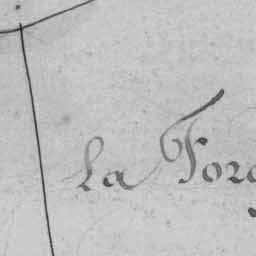 La Forg